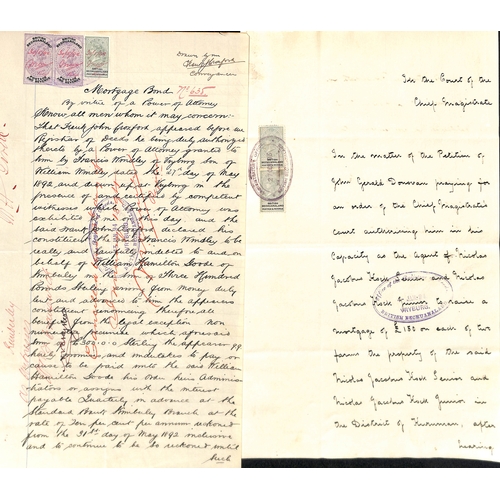 Drawn by me
Conveyancer
Mortgage Bond No 635
By virtue of a Power of Attorney
Know all men whom it may concern:
That Frank John Crawford appeared before me
Registrar of Deeds he being duly authorized
thereto by a Power of Attorney granted to
him by Francis Windley of Vryburg son of
William Windley dated the 21st day of May
1892, and drawn up at Vryburg in the
presence of and certified by competent
witnesses which Power of Attorney was
exhibited to me on this day and the
said Frank John declared his
constituent the Francis Windley to be
really and lawfully indebted to and on
behalf of William Hamilton Goode of
Kimberley in the of Three Hundred
Pounds Sterling arising from money duly
lent and advances to him the appearers
constituent renouncing therefore all
benefit from the legal exception Non
numeratae pecuniae which aforesaid
of £300.0.0 Sterling the appearer
hereby promises and undertakes to pay or
cause to be paid unto the said William
Hamilton Goode his order heirs Adminis
trators or assigns with the interest
payable Quarterly in advance at the
Standard Bank Kimberley Branch at the
rate of Ten per cent per annum reckoned
from the 31st day of May 1892 inclusive
and to continue to be reckoned until
such
Kimberley
In the Court of the
Chief Magistrate
In the matter of the Petition of
John Gerald Donovan praying for
an order of the Chief Magistrate's
Court authorising him in his
Capacity as the Agent of Nicolas
Jacobus Kock Senior and Nicolas
Jacobus Kock Junior to raise a
mortgage of £150 on each of two
farms the property of the said
Nicolas Jacobus Kock Senior and
Nicolas Jacobus Kock Junior in
the District of Kuruman, after
hearing
VRYBURG
BRITISH BECHUANALAND